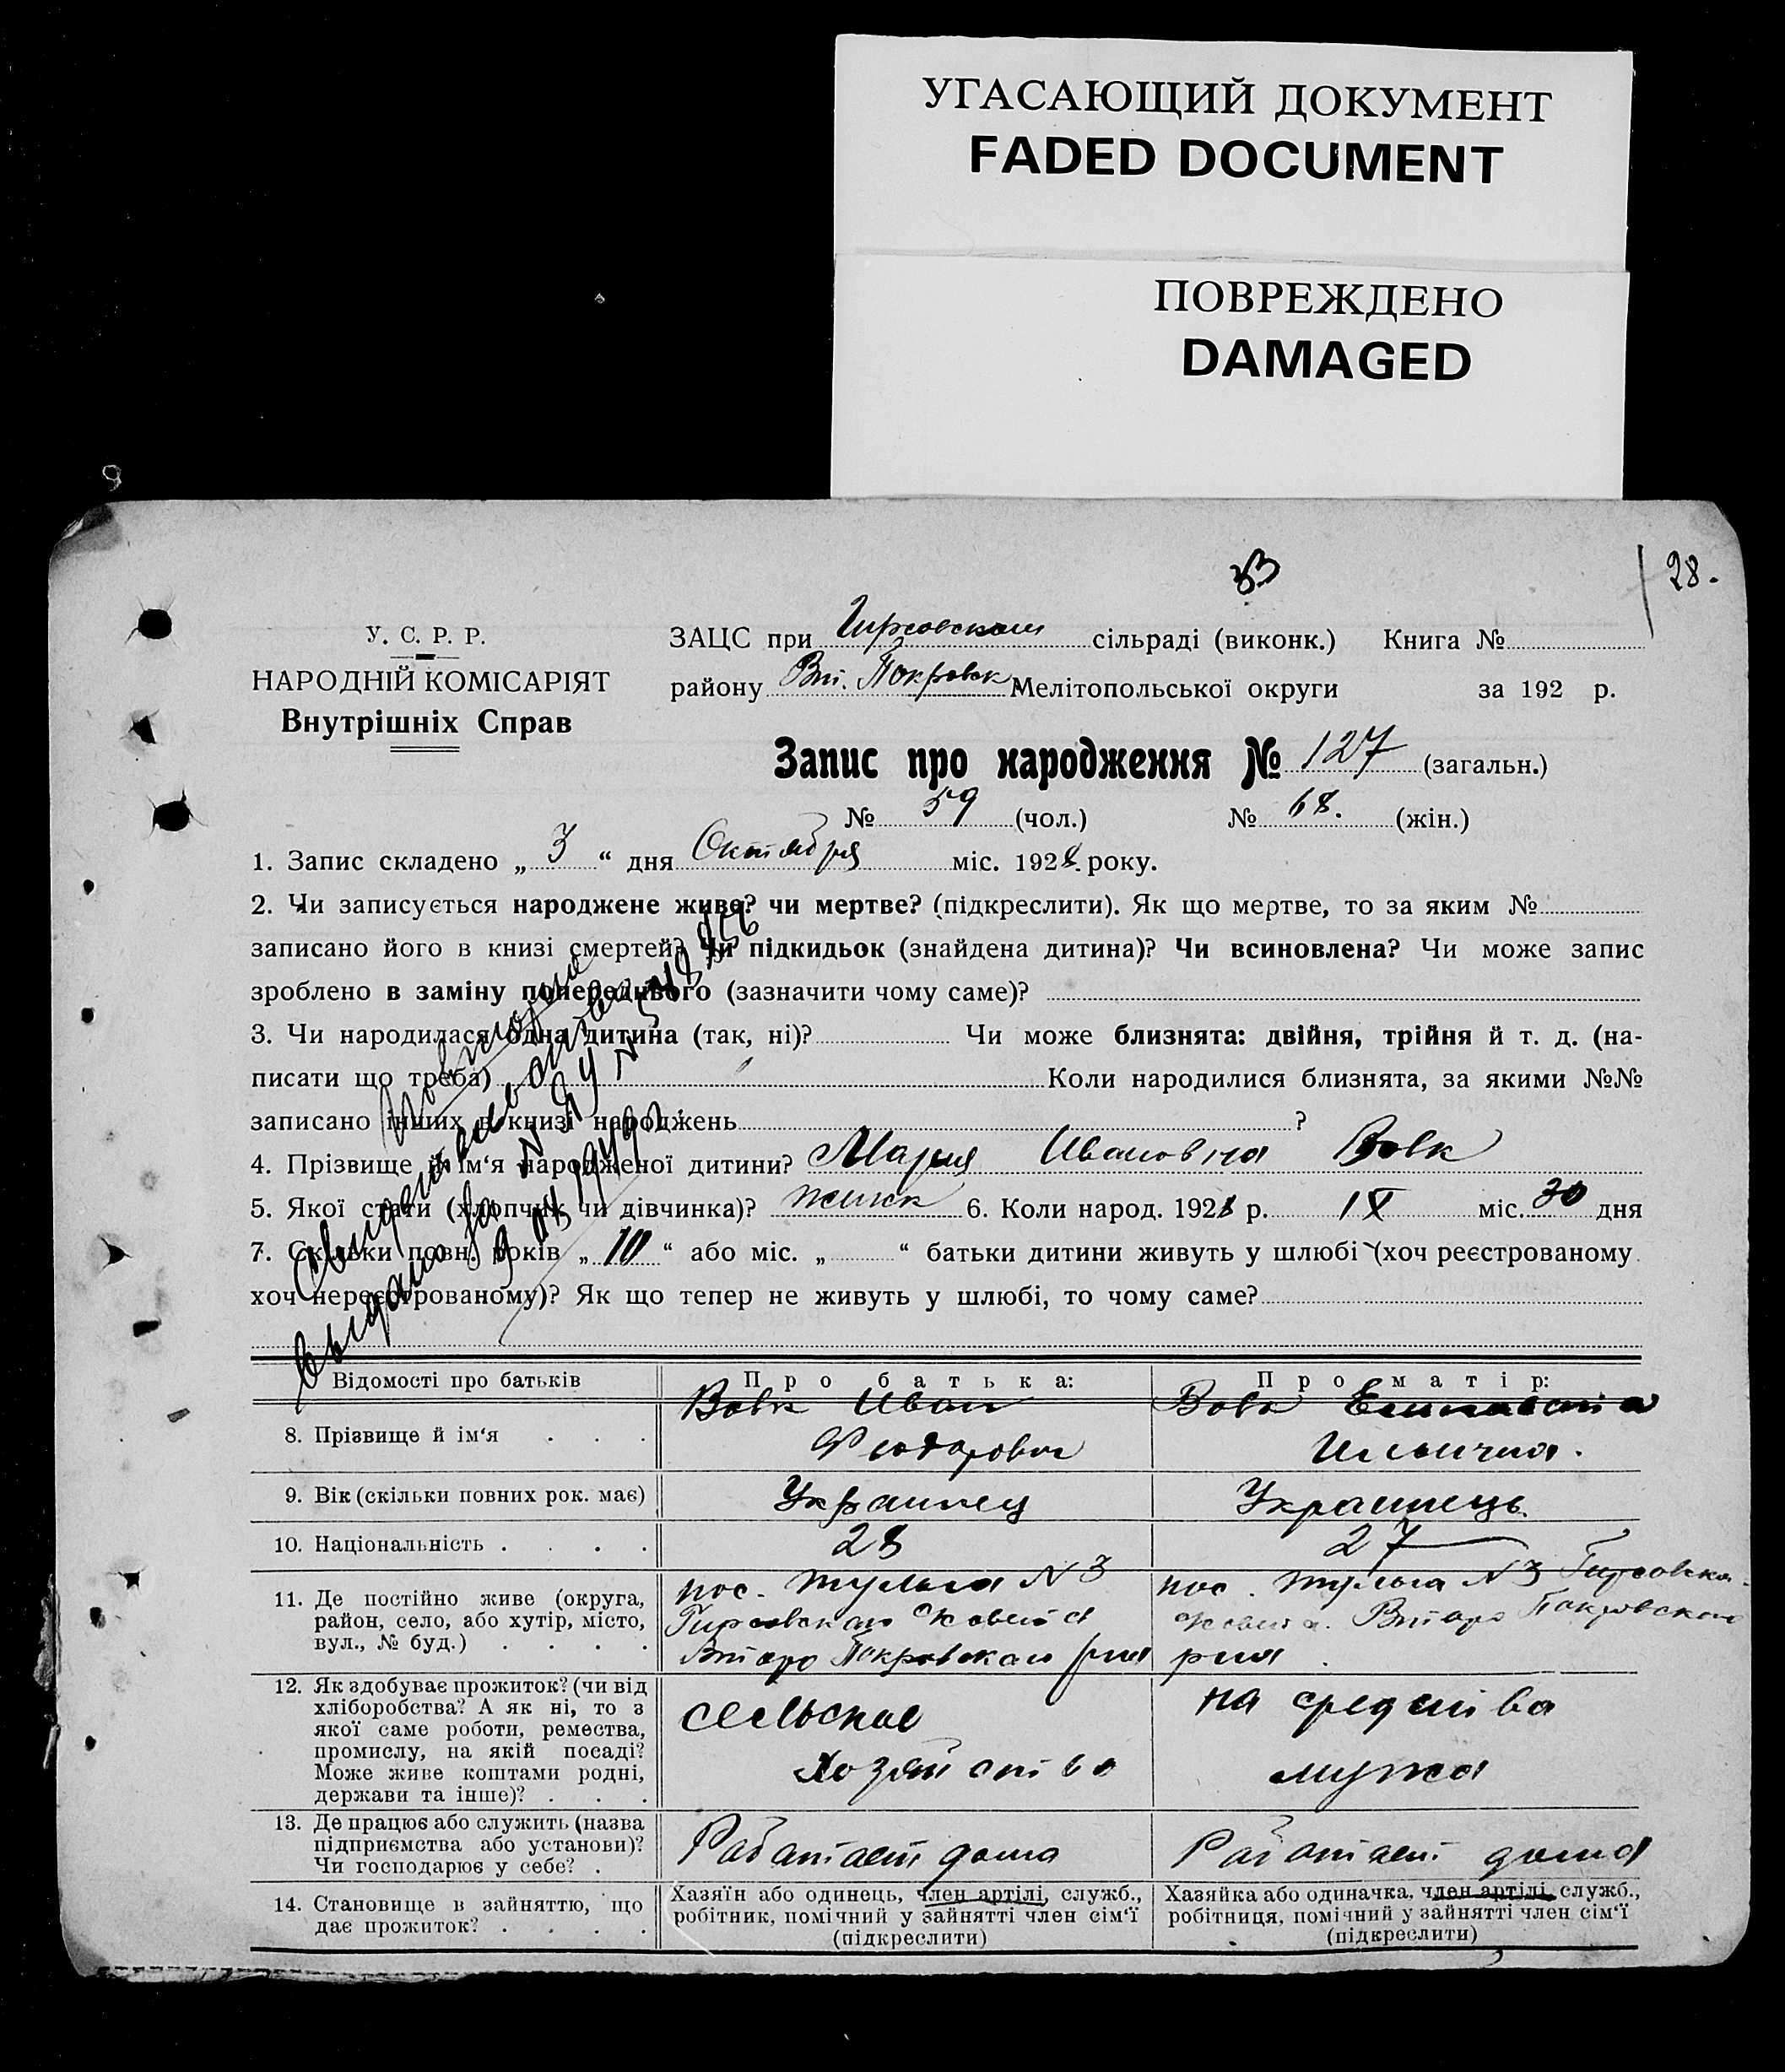 УГАСАЮЩИЙ ДОКУМЕНТ
FADED DOCUMENT
ПОВРЕЖДЕНО
DAMAGED
33
28.
У. С. Р. Р.
НАРОДНІЙ КОМІСАРІЯТ
Внутрішніх Справ
ЗАЦС при Гирсовском сільраді (виконк.) Книга №
району Вт. Покровск Мелітопольської округи за 192 р.
Запис про народження № 127 (загальн.)
№ 59 (чол.) № 68. (жін.)
1. Запис складено „ 3 “ дня Октября міс. 1928 року.
2. Чи записується народжене живе? чи мертве? (підкреслити). Як що мертве, то за яким №
записано його в книзі смертей? Чи підкидьок (знайдена дитина)? Чи всиновлена? Чи може запис
зроблено в заміну попереднього (зазначити чому саме)?
3. Чи народилася одна дитина (так, ні)? Чи може близнята: двійня, трійня й т. д. (на-
писати що треба) Коли народилися близнята, за якими №№
записано інших в книзі народжень ?
4. Прізвище й ім‘я народженої дитини? Мария Ивановна Вовк
5. Якої стати (хлопчик чи дівчинка)? женск 6. Коли народ. 1928 р. IX міс. 30 дня
7. Скільки повн. років „ 10 “ або міс. „ “ батьки дитини живуть у шлюбі (хоч реєстрованому
хоч нереєстрованому)? Як що тепер не живуть у шлюбі, то чому саме?
Повторне
Свидетельство
выдано за № ЯУ №
Відомості про батьків
Про батька:
Про матір:
8. Прізвище й ім‘я
Вовк Иван
Феодорович
Вовк Елисавета
Ильична.
9. Вік (скільки повних рок. має)
Украинец
Украинець.
10. Національність
28
27
11. Де постійно живе (округа,
район, село, або хутір, місто,
вул., № буд.)
пос. Тульга N 3
Гирсовскаго
Второ Покровскаго рна
пос. Тульга N 3 Гирсовска.
Второ Покровскаго
рна
12. Як здобуває прожиток? (чи від
хліборобства? А як ні, то з
якої саме роботи, ремества,
промислу, на якій посаді?
Може живе коштами родні,
держави та інше)?
сельское
хозяйство
на средства
мужа
13. Де працює або служить (назва
підприємства або установи)?
Чи господарює у себе?
Работает дома
Работает дома
14. Становище в зайняттю, що
дає прожиток?
Хазяїн або одинець, член артілі, служб.,
робітник, помічний у зайнятті член сім‘ї
(підкреслити)
Хазяйка або одиначка, член артілі, служб.,
робітниця, помічний у зайнятті член сім‘ї
(підкреслити)